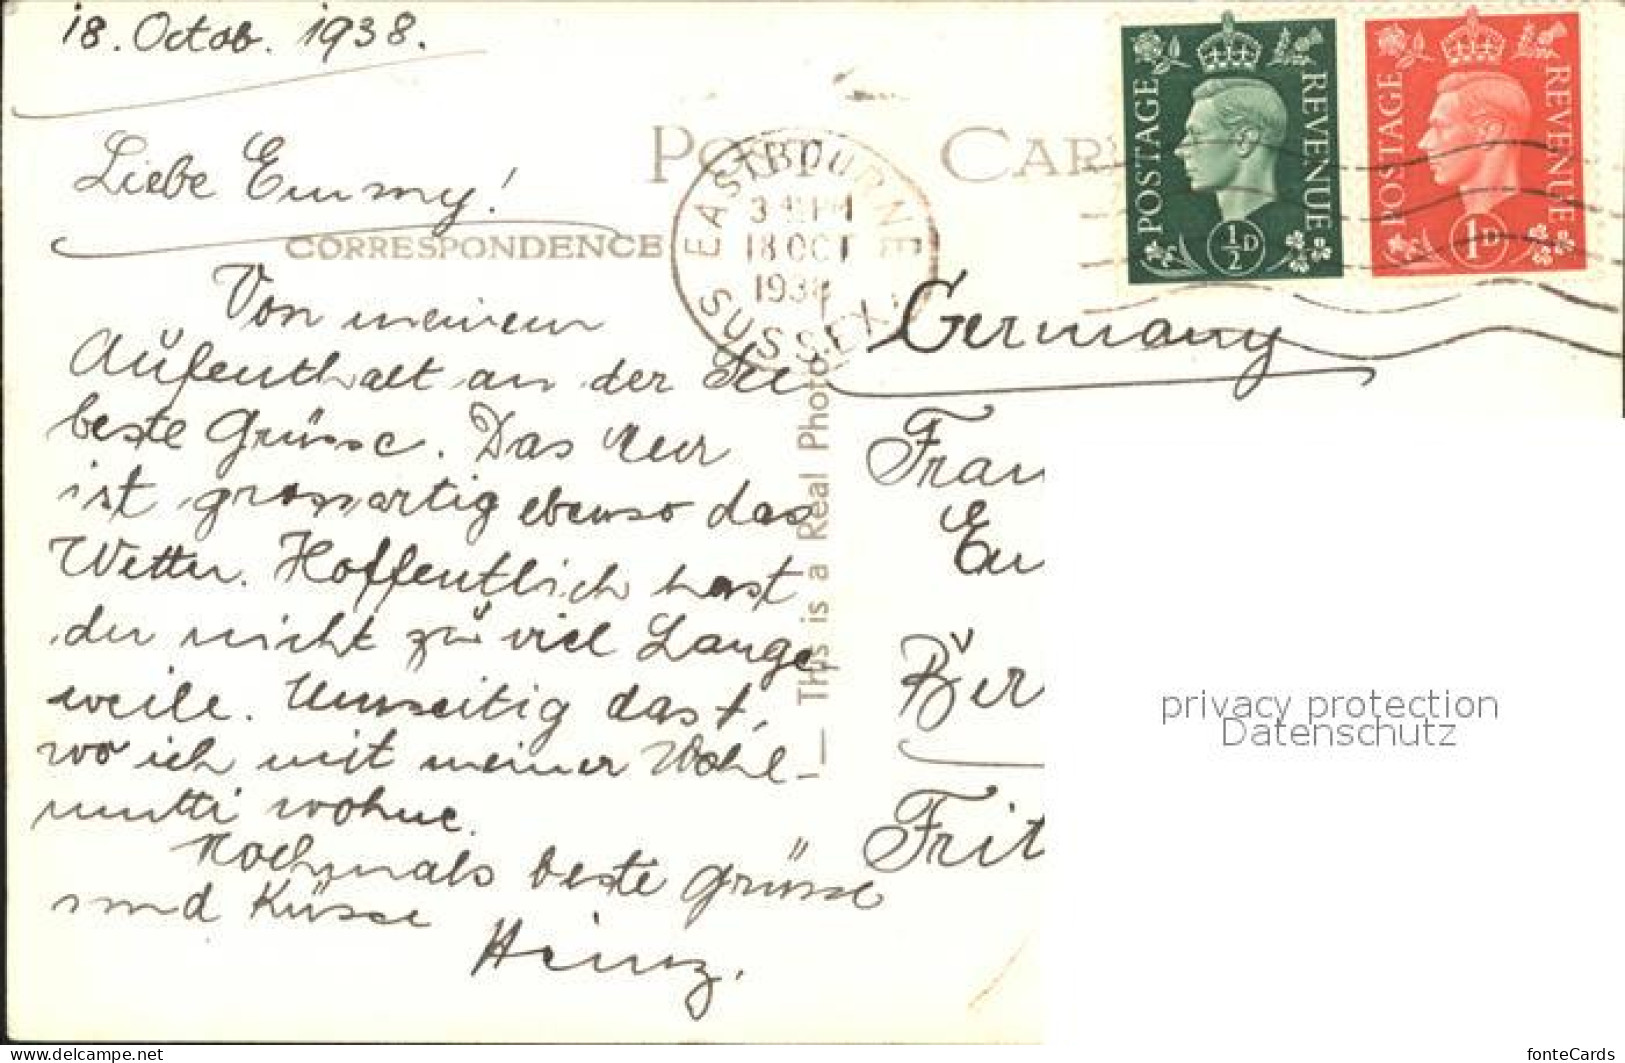 18. Octob. 1938.
Liebe Emmy!
POST CARD
CORRESPONDENCE
EASTBOURNE
18 OCT
1938
SUSSEX
POSTAGE REVENUE
½D
POSTAGE REVENUE
1D
Von meinem
Aufenthalt an der See
beste Grüsse. Das Meer
ist grossartig ebenso das
Wetter. Hoffentlich hast
du nicht zu viel Lange-
weile. Umseitig das
wo ich mit meiner Wohl-
mutti wohne.
Nochmals beste Grüsse
und Küsse
Heinz.
This is a Real Photo
Germany
Frau
Em
Ber
Frit
privacy protection
Datenschutz
https://www.delcampe.net
fonteCards